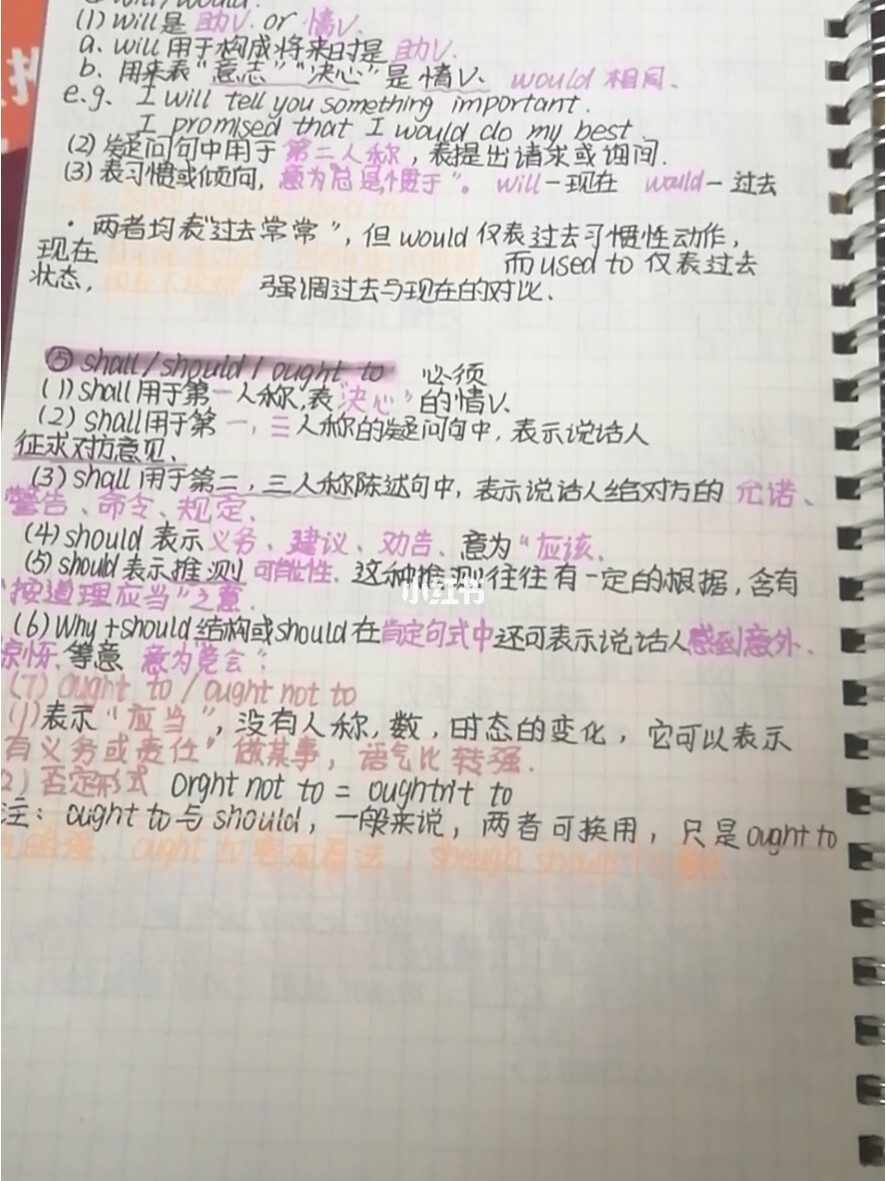 will/would.
(1) will是 助V. or 情V.
a. will 用于构成将来时是 助V.
b. 用来表“意志”“决心”是情V、 would 相同、
e.g. I will tell you something important.
I promised that I would do my best.
(2) 疑问句中用于 第二人称，表提出请求或询问.
(3) 表习惯或倾向，意为“总是惯于”。 will-现在 would-过去
· 两者均表“过去常常”，但 would 仅表过去习惯性动作，
现在 而 used to 仅表过去
状态， 强调过去与现在的对比、
⑤ shall/should/ought to 必须
(1) shall 用于第一人称，表“决心”的情V、
(2) shall用于第一，三人称的疑问句中，表示说话人
征求对方意见、
(3) shall 用于第二，三人称陈述句中，表示说话人给对方的 允诺、
警告、命令、规定、
(4) should 表示义务、建议、劝告、意为“应该、
(5) should 表示推测 可能性、这种推测往往有一定的根据，含有
“按道理应当”之意.
小红书
(6) Why+should结构或should在肯定句式中还可表示说话人感到意外、
惊讶、等意 意为“竟会”：
(7) ought to / ought not to
(1) 表示“应当”，没有人称，数，时态的变化，它可以表示
有义务或责任”做某事，语气比 转强.
2) 否定形式 orght not to = oughtn't to
注：ought to 与 should，一般来说，两者可换用，只是 ought to
ought to should